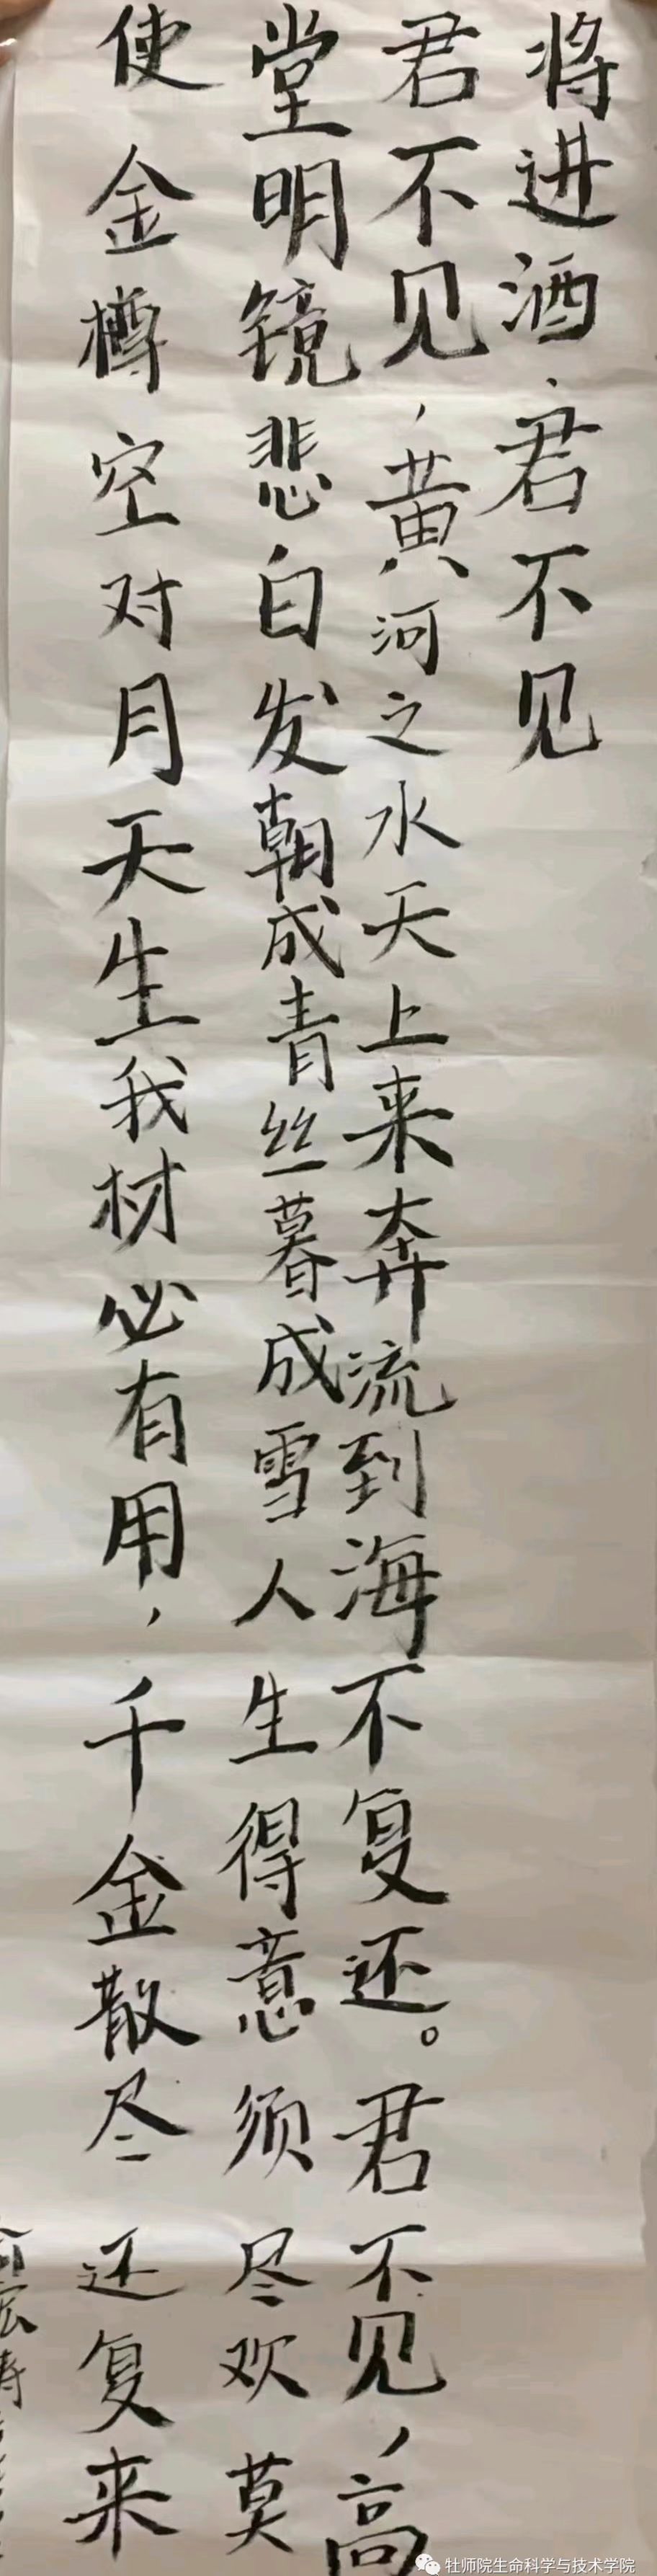 将进酒、君不见
君不见，黄河之水天上来奔流到海不复还。君不见，高
堂明镜悲白发朝成青丝暮成雪人生得意须尽欢莫
使金樽空对月天生我材必有用，千金散尽还复来
牡师院生命科学与技术学院